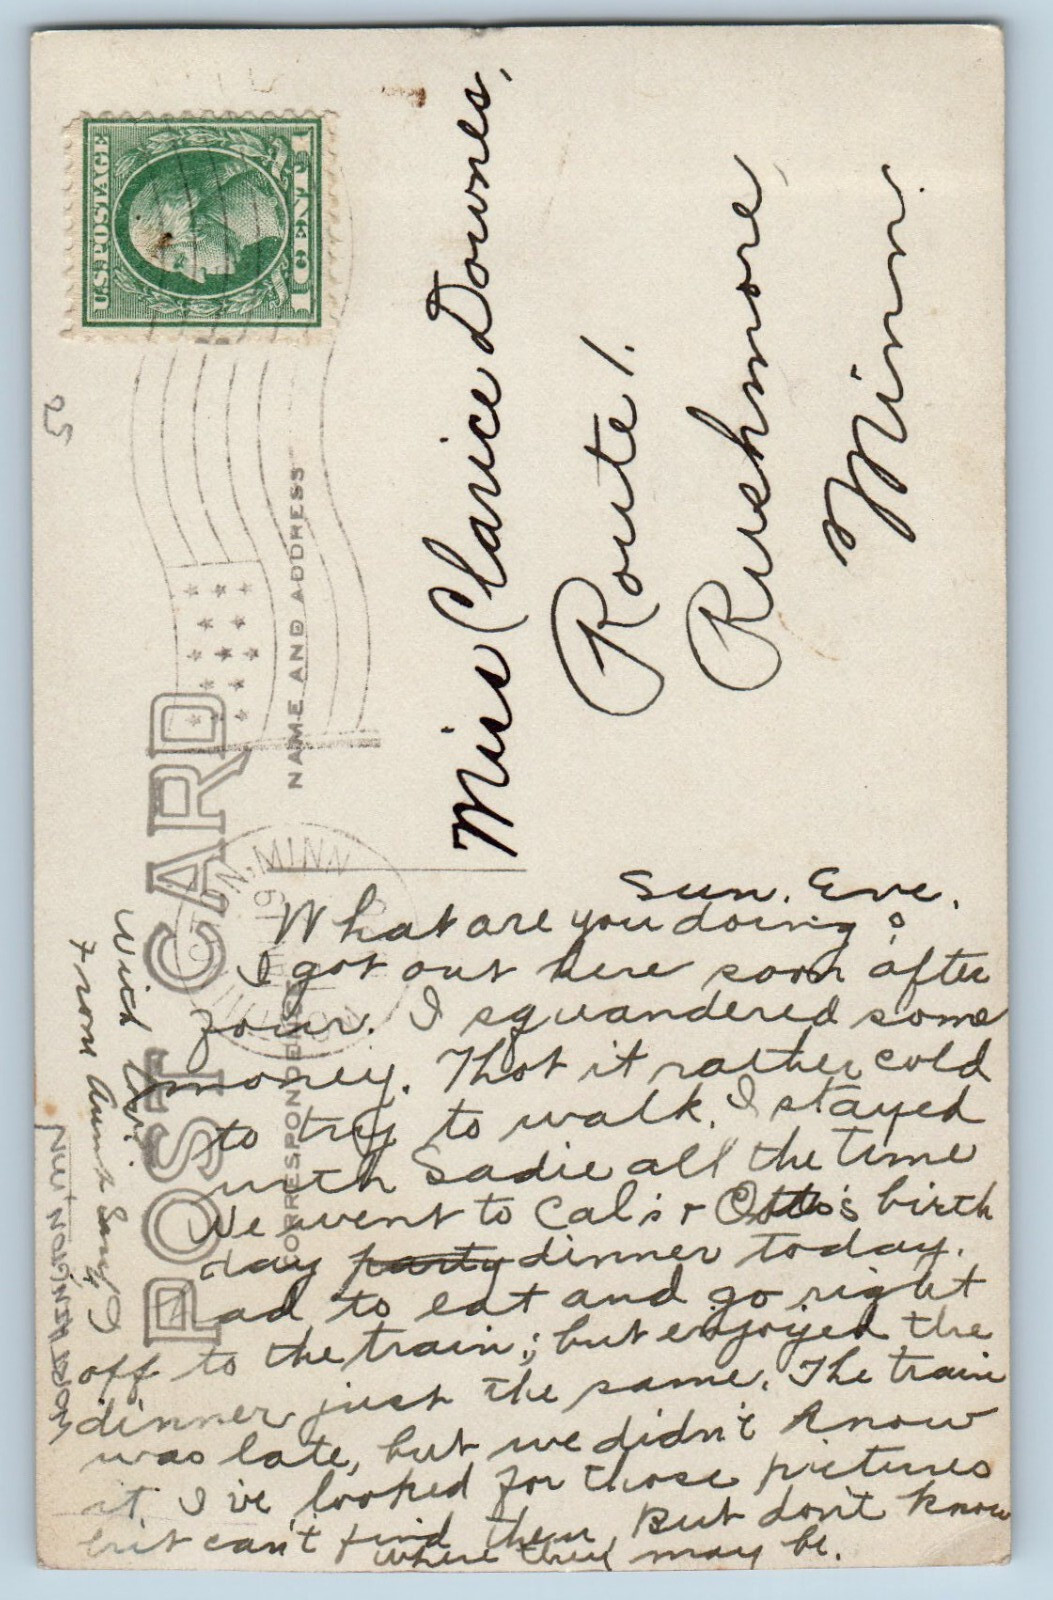 U.S. POSTAGE
1 CENT 1
25
POST CARD
NAME AND ADDRESS
CORRESPONDENCE
MINN
19
Miss Clarice Downes,
Route 1.
Rushmore
Minn.
Sun. Eve.
What are you doing?
I got out here soon after
four. I squandered some
money. Thot it rather cold
to try to walk. I stayed
with Sadie all the time
We went to Cal's + Otto's birth
day party dinner today.
ad to eat and go right
off to the train; but enjoyed the
dinner just the same. The train
was late, but we didn't know
it. I've looked for those pictures
but can't find them, But don't know
where they may be.
With love
from Aunt
WORTHINGTON, MN